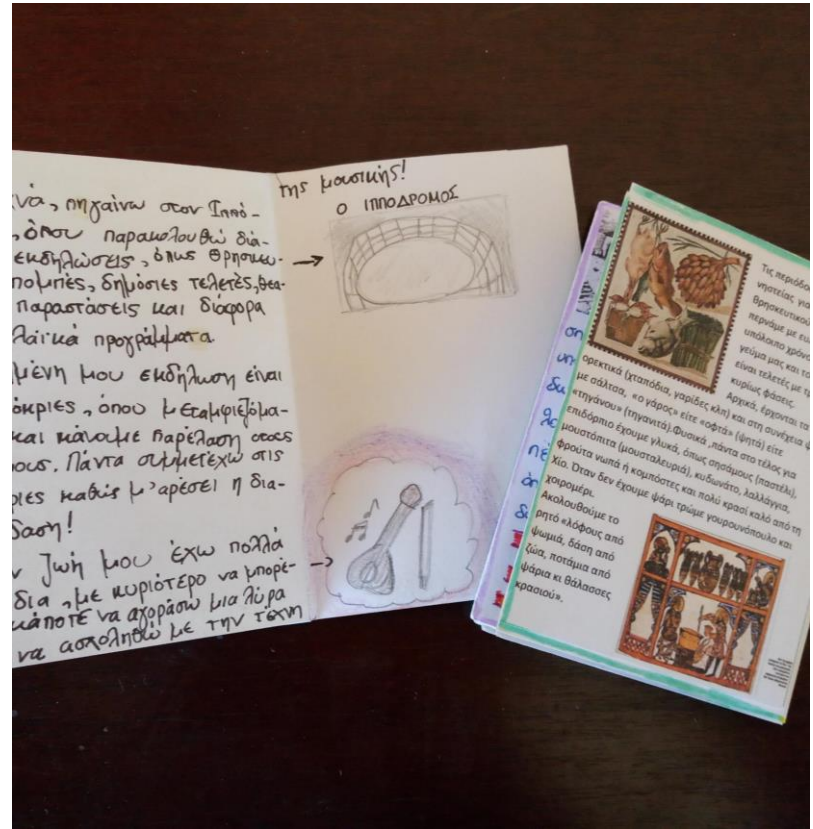 νά, πηγαίνω στον Ιππό-
, όπου παρακολουθώ διά-
εκδηλώσεις, όπως θρησκευ-
πομπές, δημόσιες τελετές, θεα-
παραστάσεις και διάφορα
λαϊκά προγράμματα.
μένη μου εκδήλωση είναι
όκριες, όπου μεταμφιεζόμα-
και κάνουμε παρέλαση στους
ους. Πάντα συμμετέχω στις
ριες καθώς μ'αρέσει η δια-
δαση!
ν ζωή μου έχω πολλά
δια, με κυριότερο να μπορέ-
κάποτε να αγοράσω μια λύρα
να ασχοληθώ με την τέχνη
της μουσικής!
Ο ΙΠΠΟΔΡΟΜΟΣ
Τις περιόδου
νηστείας για
θρησκευτικού
περνάμε με ευ
υπόλοιπο χρόνο
γεύμα μας και το
είναι τελετές με τρ
κυρίως φάσεις.
Αρχικά, έρχονται τα
ορεκτικά (χταπόδια, γαρίδες κλπ) και στη συνέχεια ψ
με σάλτσα, «ο γάρος» είτε «οφτά» (ψητά) είτε
«τηγάνου» (τηγανιτά).Φυσικά ,πάντα στο τέλος για
επιδόρπιο έχουμε γλυκά, όπως σησάμους (παστέλι),
μουστόπιτα (μουσταλευριά), κυδωνάτο, λαλλάγγια,
φρούτα νωπά ή κομπόστες και πολύ κρασί καλό από τη
Χίο. Όταν δεν έχουμε ψάρι τρώμε γουρουνόπουλο και
χοιρομέρι.
Ακολουθούμε το
ρητό «λόφους από
ψωμιά, δάση από
ζώα, ποτάμια από
ψάρια κι θάλασσες
κρασιού».